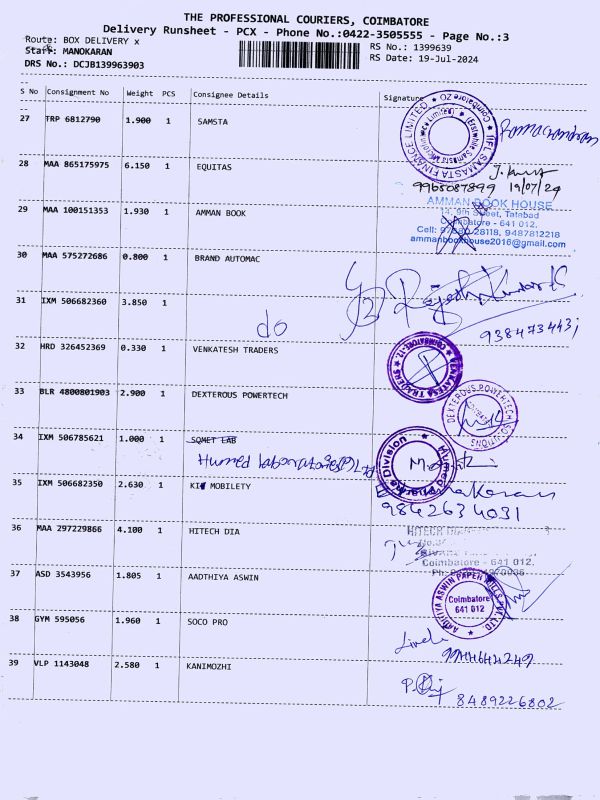 THE PROFESSIONAL COURIERS, COIMBATORE
Delivery Runsheet - PCX - Phone No.:0422-3505555 - Page No.:3
Route: BOX DELIVERY x
Staff: MANOKARAN
DRS No.: DCJB139963903
RS No.: 1399639
RS Date: 19-Jul-2024
S No Consignment No Weight PCS Consignee Details Signature
27 TRP 6812790 1.900 1 SAMSTA
IIFL SAMASTA FINANCE LIMITED
Coimbatore
28 MAA 865175975 6.150 1 EQUITAS
9965087899 19/07/24
29 MAA 100151353 1.930 1 AMMAN BOOK
AMMAN BOOK HOUSE
14, 9th Street, Tatabad
Coimbatore - 641 012.
28118, 9487812218
ammanbookhouse2016@gmail.com
30 MAA 575272686 0.800 1 BRAND AUTOMAC
31 IXM 506682360 3.850 1
do
32 HRD 326452369 0.330 1 VENKATESH TRADERS
VENKATESA TRADERS
COIMBATORE-12
33 BLR 4800801903 2.900 1 DEXTEROUS POWERTECH
DEXTEROUS POWERTECH SOLUTIONS
34 IXM 506785621 1.000 1 SQMET LAB
Division
35 IXM 506682350 2.630 1 KI MOBILETY
9842634031
36 MAA 297229866 4.100 1 HITECH DIA
HITECH
Coimbatore - 641 012.
37 ASD 3543956 1.805 1 AADTHIYA ASWIN
AADHITYA ASWIN PAPER MILLS PVT. LTD.
Coimbatore
641 012
38 GYM 595056 1.960 1 SOCO PRO
39 VLP 1143048 2.580 1 KANIMOZHI
8489226802